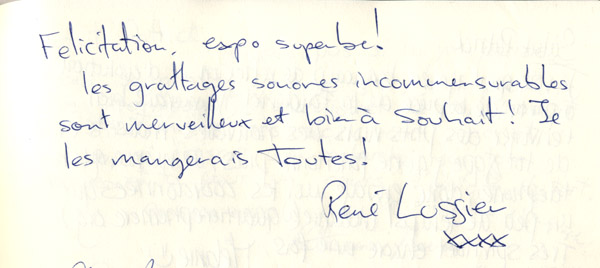 Felicitation, expo superbe!
les grattages sonores incommensurables
sont merveilleux et bien à souhait! Je
les mangerais toutes!
René Lussier
xxxx